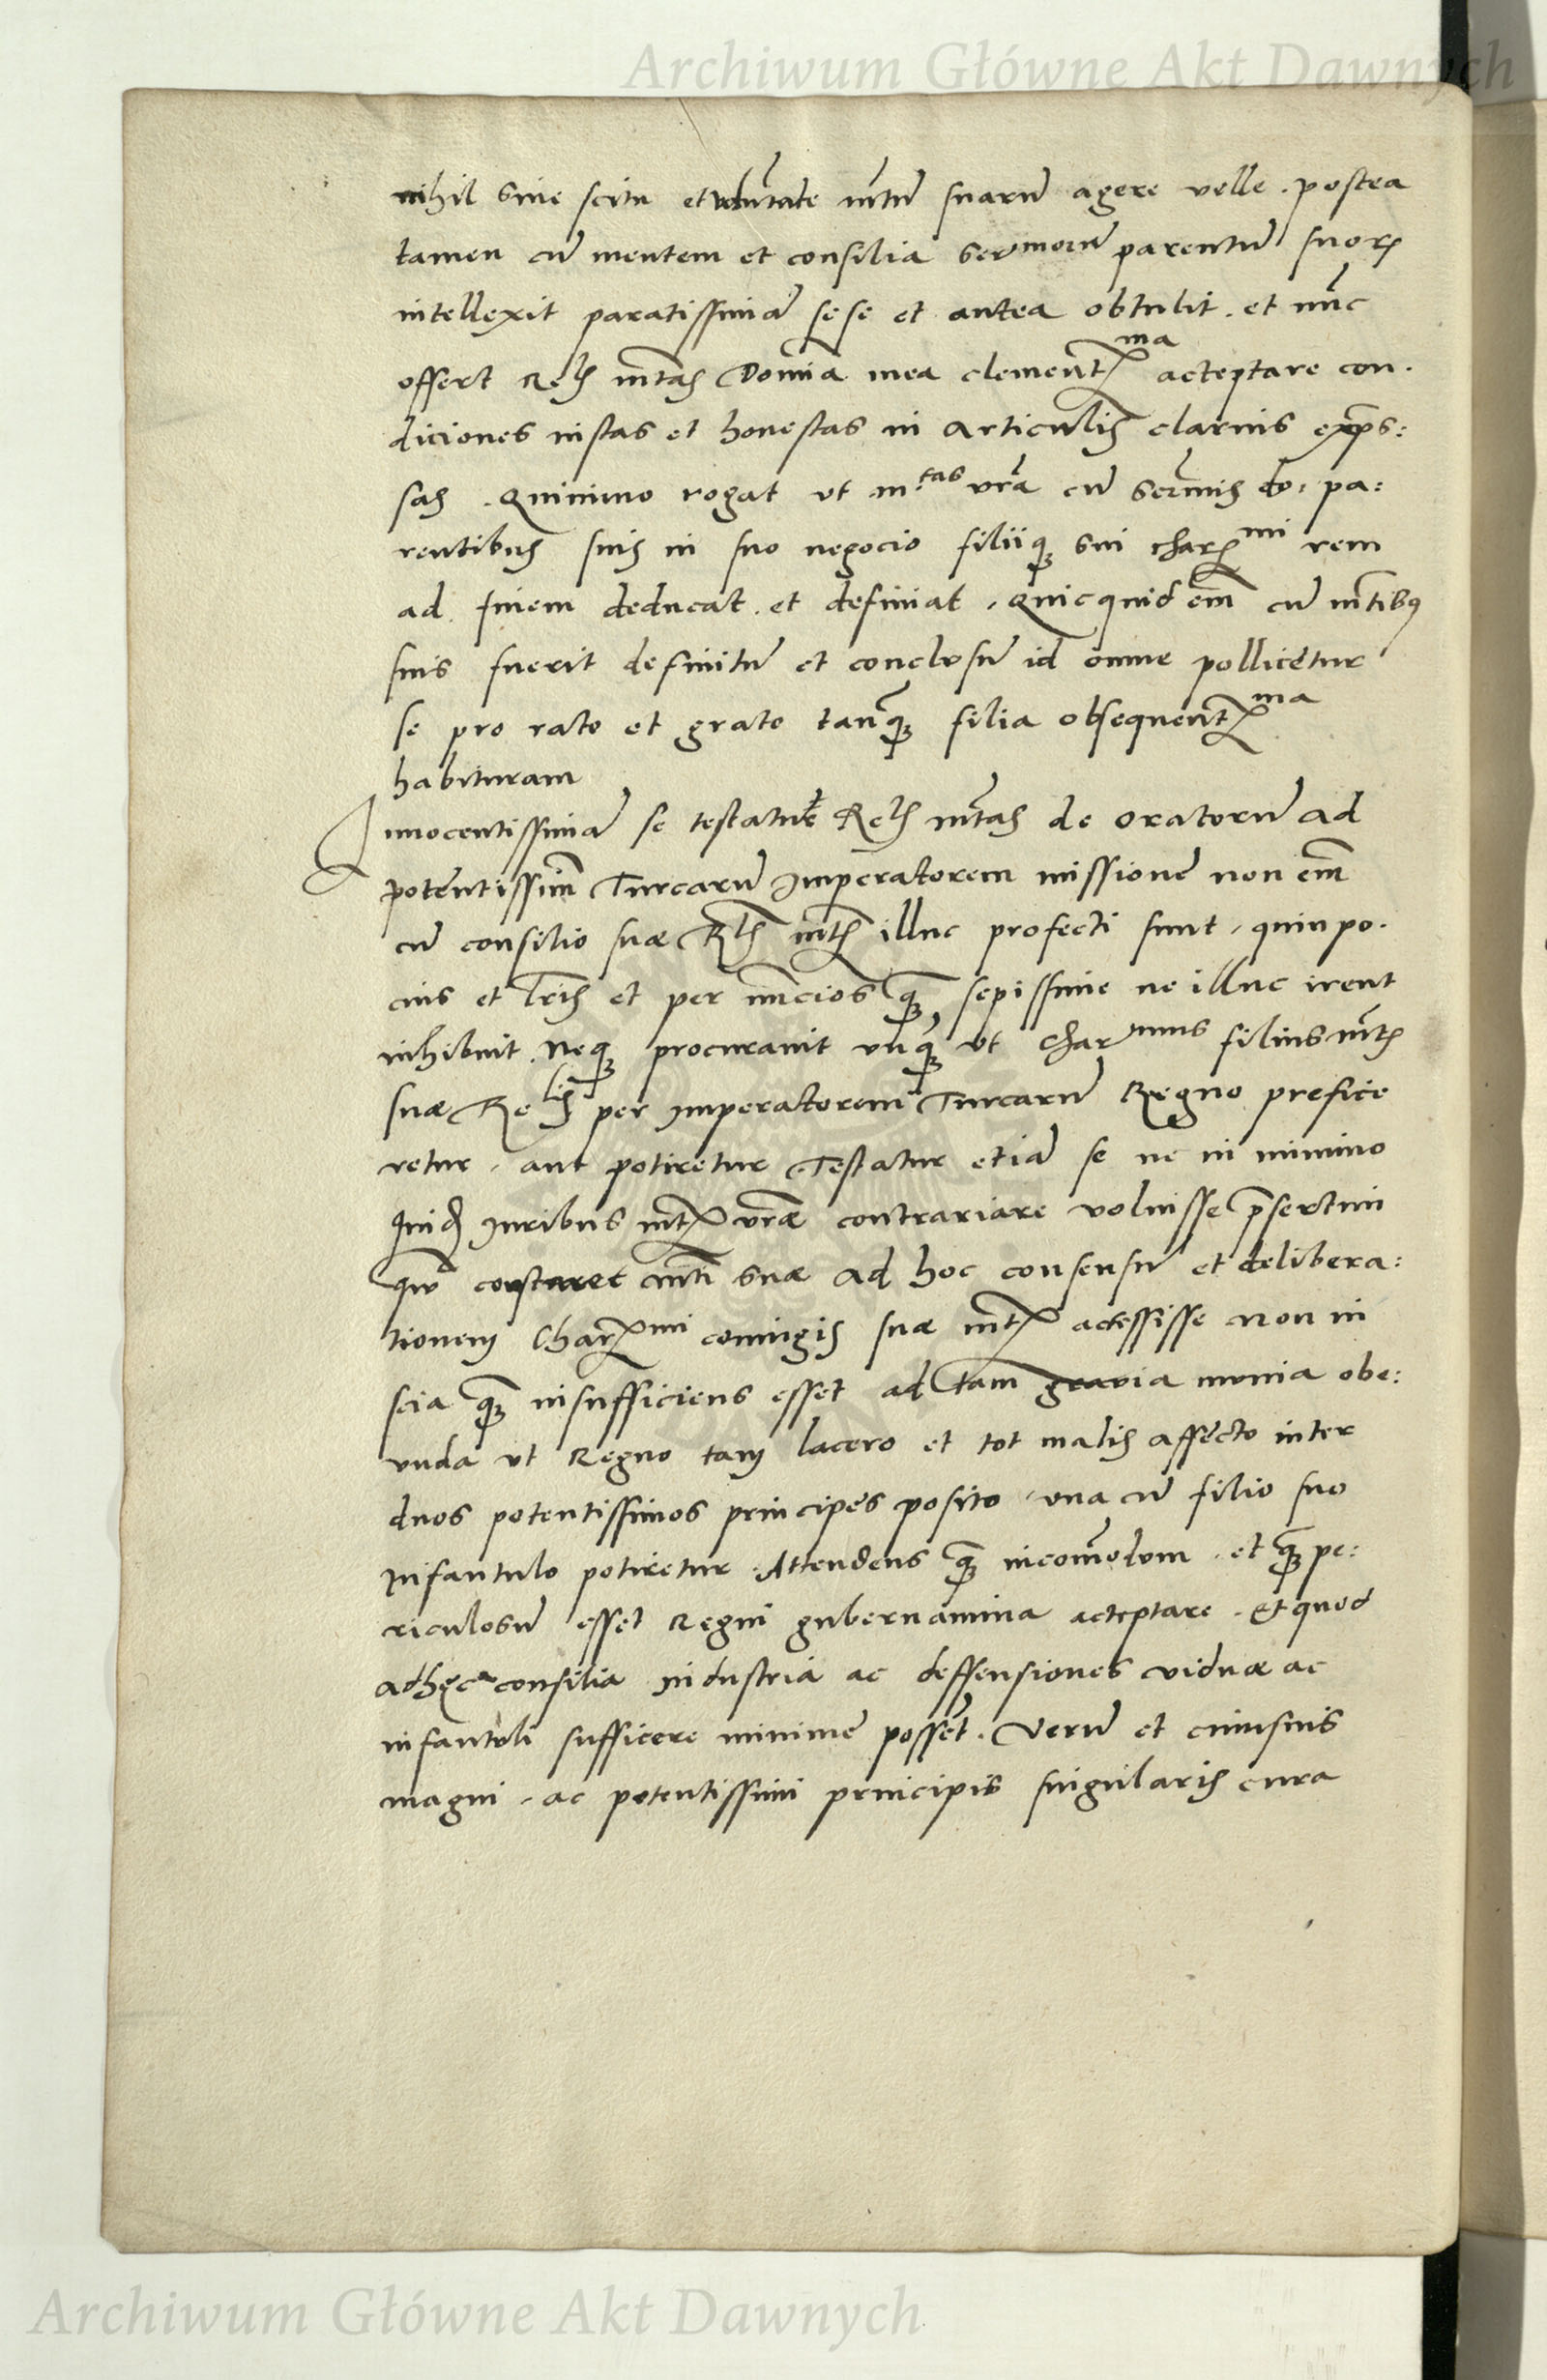 Archiwum Główne Akt Dawnych
nihil sine scitu et volu̅tate mtu̅ suaru̅ agere velle . postea
tamen cu̅ mentem et consilia sermoru̅ parentu̅ suoꝝ
intellexit paratissima̅ sese et antea obtulit . et nu̅c
offert Relis mtas Domi̅a mea clementma acceptare con-
diciones iustas et honestas in Articulis clarius exp̅s:
sas . Quinimo rogat vt m.tas vr̅a cu̅ serm̅is do. pa:
rentibus suis in suo negocio filiiqꝫ sui charmi rem
ad finem deducat . et definiat . Quicquid em̅ cu̅ mtibꝰ
suis fuerit definitu̅ et conclusu̅ id omne pollicetur
se pro rato et grato tanqꝫ filia obsequentma
habituram
Innocentissima̅ se testatur Relis mtas de oratoru̅ ad
potentissim̅ Turcaru̅ Imperatorem missione̅ non em̅
cu̅ consilio suæ Rlis mtis illuc profecti sunt , quin po-
cius et lr̅is et per nu̅cios qꝫ sepissime ne illuc irent
inhibuit . Neqꝫ procurauit vnqꝫ vt Charmus filius mtis
suæ Relis per Imperatorem Turcaru̅ Regno prefice
retur , aut potiretur . Testatur etia̅ se ne in minimo
quidem Iuribus mtis vr̅æ contrariare voluisse p̅sertim
qu̅ constaret mti suæ ad hoc consensu̅ et delibera:
tionem Charmi coniugis suæ mtis accessisse non in
scia qꝫ insufficiens esset ad tam grauia munia obe:
unda vt Regno tam lacero et tot malis affecto inter
duos potentissimos principes posito , vna cu̅ filio suo
Infantulo potiretur . Attendens qꝫ incom̅odum . et qꝫ pe:
riculosu̅ esset Regni gubernamina acceptare . Et quod
ad hęc consilia industria ac deffensiones viduæ ac
infantuli sufficere minime posse̅t . Veru̅ et cuiusuis
magni . ac potentissimi principis singularis cura
Archiwum Główne Akt Dawnych